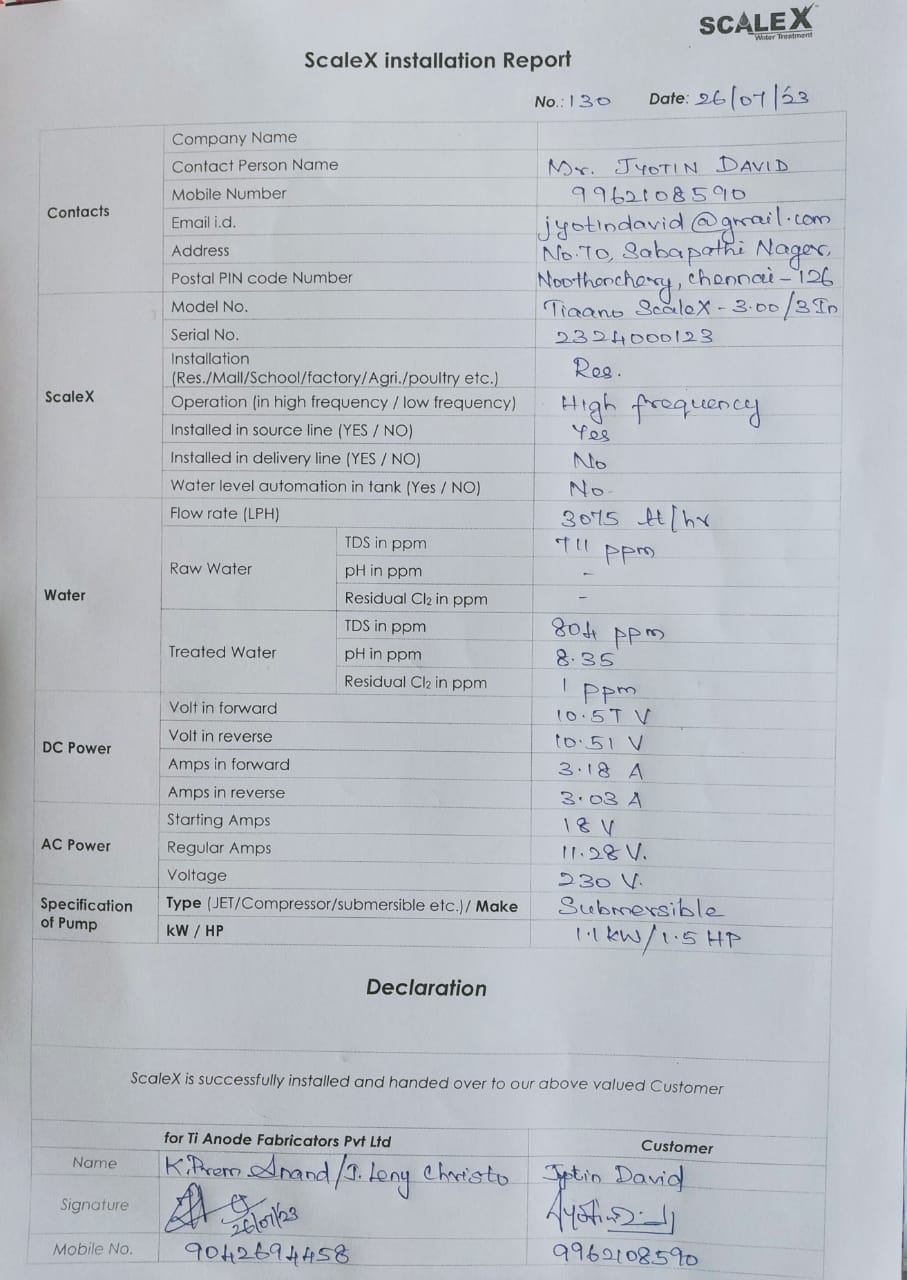 SCALEX
Water Treatment
ScaleX installation Report
No.: 130 Date: 26/07/23
Contacts
Company Name
Contact Person Name Mr. JYOTIN DAVID
Mobile Number 9962108590
Email i.d. jyotindavid@gmail.com
Address No.70, Sabapathi Nager,
Postal PIN code Number Noothenchery, chennai-126
ScaleX
Model No. Tiaano ScaleX - 3.00/3 In
Serial No. 2324000123
Installation
(Res./Mall/School/factory/Agri./poultry etc.) Res.
Operation (in high frequency / low frequency) High frequency
Installed in source line (YES / NO) Yes
Installed in delivery line (YES / NO) No
Water level automation in tank (Yes / NO) No
Water
Flow rate (LPH) 3075 lt/hr
Raw Water
TDS in ppm 711 ppm
pH in ppm -
Residual Cl2 in ppm -
Treated Water
TDS in ppm 804 ppm
pH in ppm 8.35
Residual Cl2 in ppm 1 ppm
DC Power
Volt in forward 10.57 V
Volt in reverse 10.51 V
Amps in forward 3.18 A
Amps in reverse 3.03 A
AC Power
Starting Amps 18 V
Regular Amps 11.28 V.
Voltage 230 V.
Specification
of Pump
Type (JET/Compressor/submersible etc.)/ Make Submersible
kW / HP 1.1 kW/1.5 HP
Declaration
ScaleX is successfully installed and handed over to our above valued Customer
for Ti Anode Fabricators Pvt Ltd Customer
Name K.Prem Anand/J. Leny Christo Jyotin David
Signature 26/07/23
Mobile No. 9042694458 9962108590